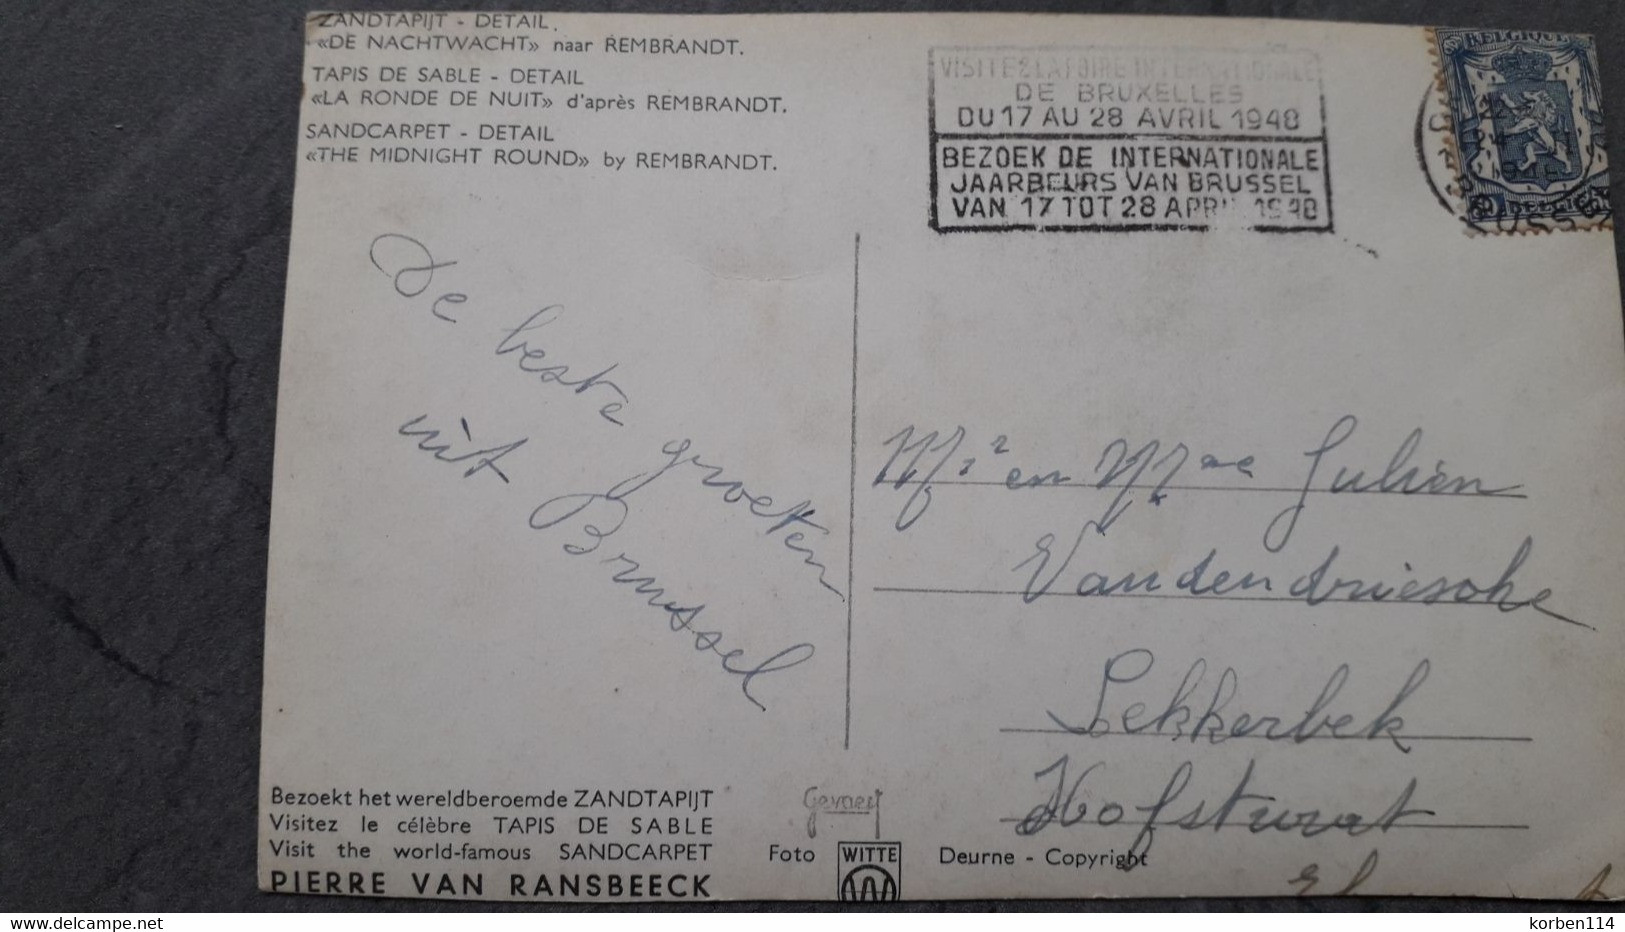 ZANDTAPIJT - DETAIL.
«DE NACHTWACHT» naar REMBRANDT.
TAPIS DE SABLE - DETAIL
«LA RONDE DE NUIT» d'après REMBRANDT.
SANDCARPET - DETAIL
«THE MIDNIGHT ROUND» by REMBRANDT.
VISITEZ LA FOIRE INTERNATIONALE
DE BRUXELLES
DU 17 AU 28 AVRIL 1948
BEZOEK DE INTERNATIONALE
JAARBEURS VAN BRUSSEL
VAN 17 TOT 28 APRIL 1948
BELGIQUE
BELGIE
De beste groeten
uit Brussel
Mr en Mme Julien
Vandendriessche
Lekkerbek
Hofstraat
Bezoekt het wereldberoemde ZANDTAPIJT
Visitez le célèbre TAPIS DE SABLE
Visit the world-famous SANDCARPET
PIERRE VAN RANSBEECK
Gevaert
Foto WITTE Deurne - Copyright
delcampe.net
korben114